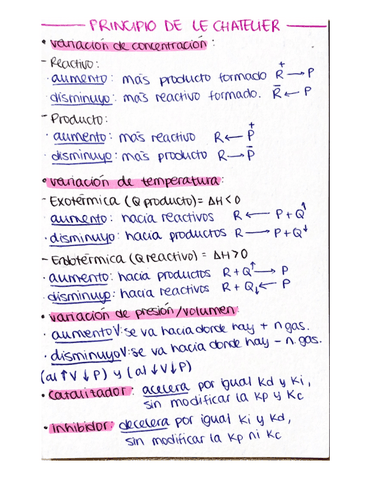 PRINCIPIO DE LE CHATELIER
• variación de concentración:
- Reactivo:
· aumento: más producto formado R⁺ → P
· disminuyo: más reactivo formado. R⁻ ← P
- Producto:
· aumento: más reactivo R ← P⁺
· disminuyo: más producto R → P⁻
• variación de temperatura:
- Exotérmica (Q producto) = ΔH < 0
· aumento: hacia reactivos R ← P + Q↑
· disminuyo: hacia productos R → P + Q↓
- Endotérmica (Q reactivo) = ΔH > 0
· aumento: hacia productos R + Q↑ → P
· disminuyo: hacia reactivos R + Q↓ ← P
• variación de presión/volumen
· aumento V: se va hacia donde hay + n gas.
· disminuyo V: se va hacia donde hay - n gas.
(al ↑V ↓P) y (al ↓V ↓P)
• Catalitador: acelera por igual Kd y Ki,
sin modificar la Kp y Kc
• Inhibidor: decelera por igual Ki y Kd,
sin modificar la Kp ni Kc